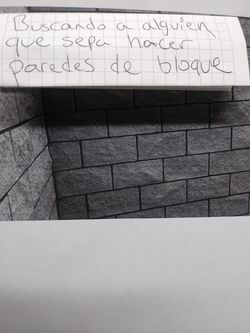 Buscando a alguien
que sepa hacer
paredes de bloque